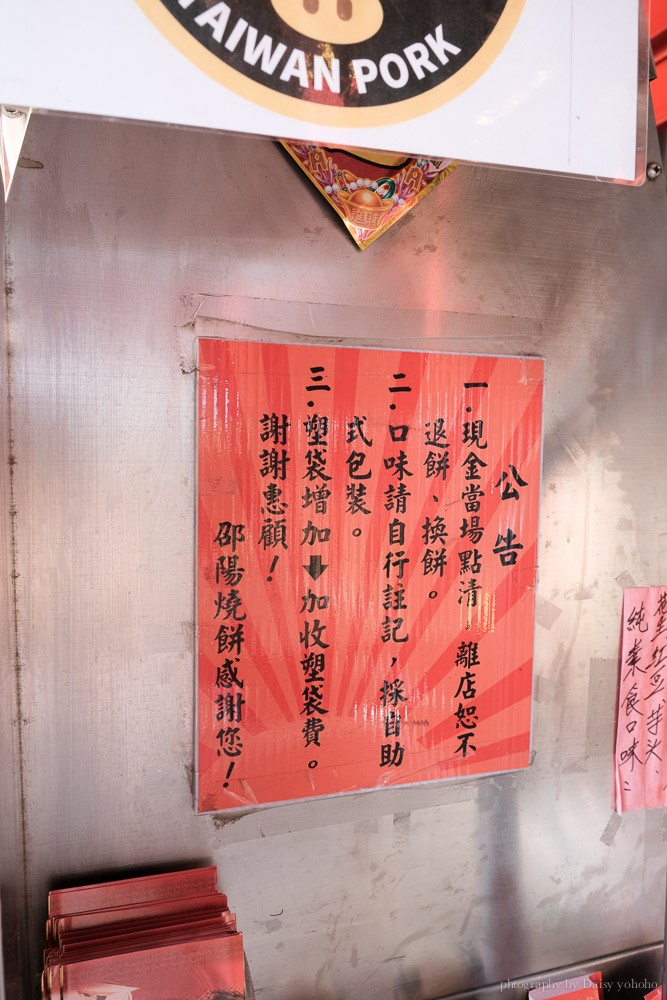 TAIWAN PORK
公告
一.現金當場點清,離店恕不
退餅、換餅。
二.口味請自行註記,採自助
式包裝。
三.塑袋增加⬇加收塑袋費。
謝謝惠顧!
邵陽燒餅感謝您!
紅豆芋头、
純素食口味:
photography by Daisy yohoho